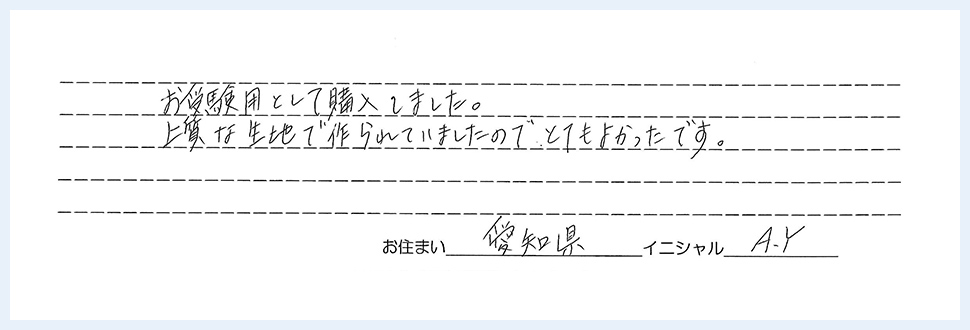 お受験用として購入しました。
上質な生地で作られていましたので、とてもよかったです。
お住まい 愛知県 イニシャル A.Y